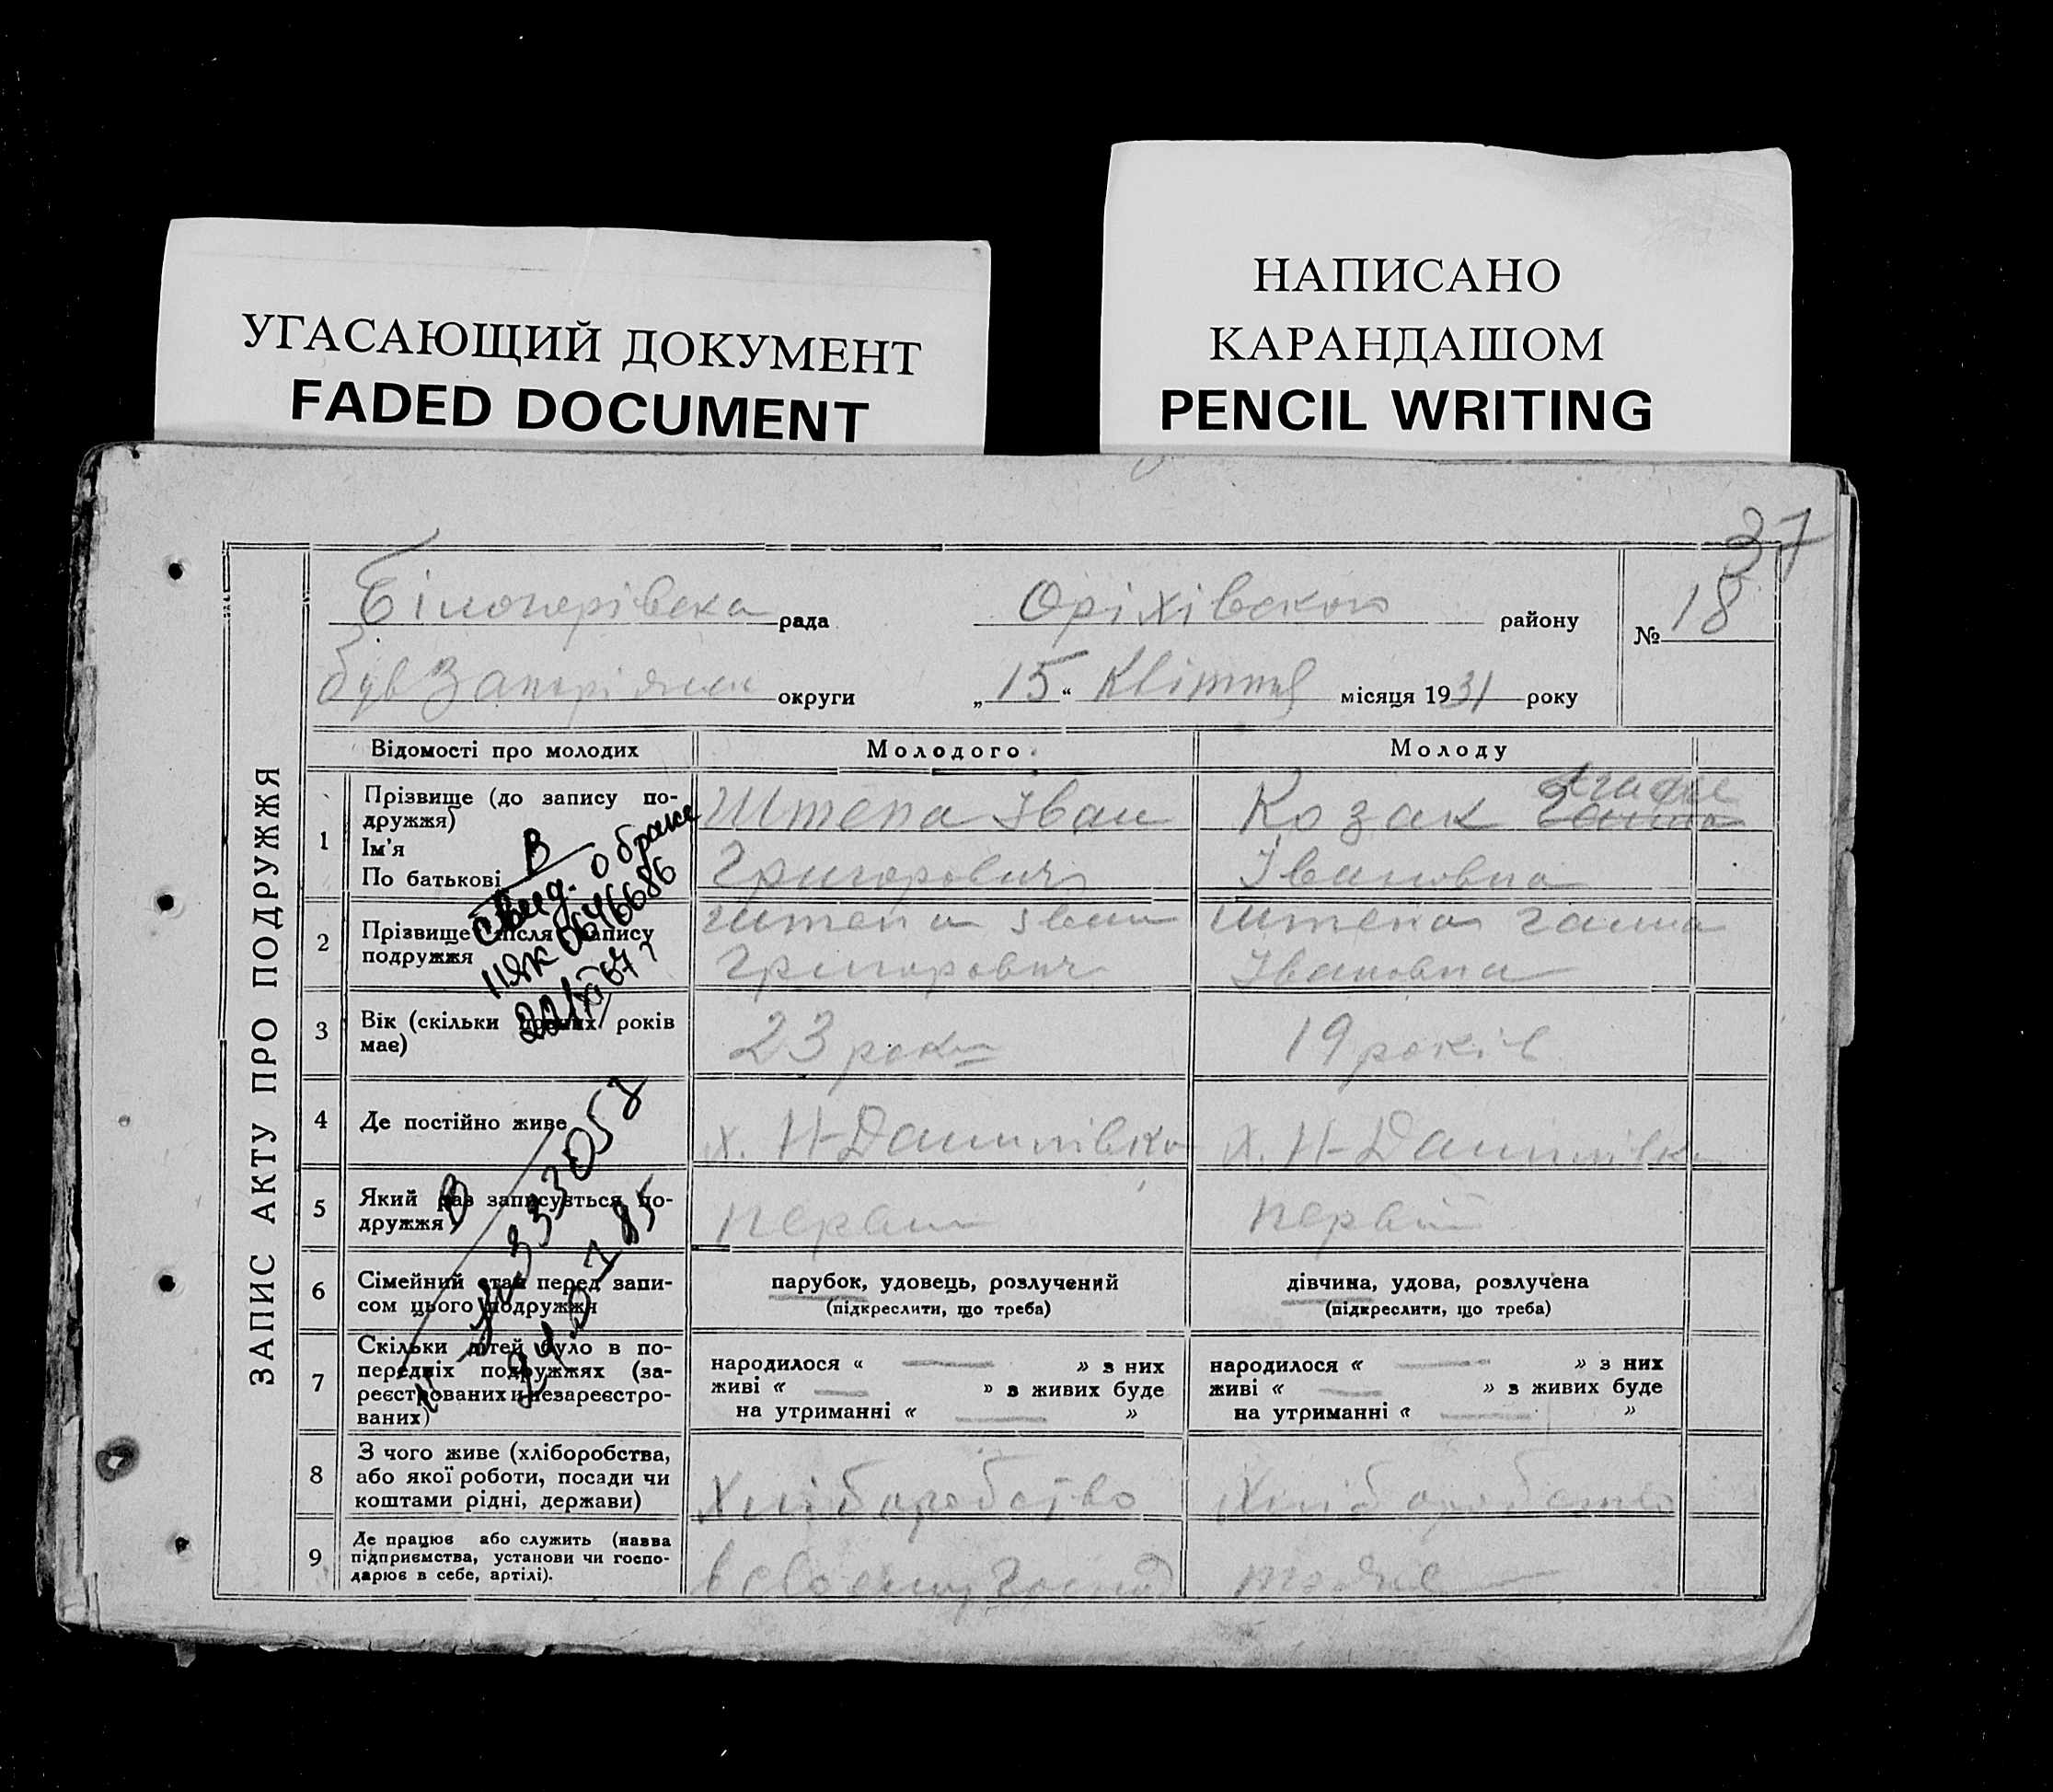 УГАСАЮЩИЙ ДОКУМЕНТ
FADED DOCUMENT
НАПИСАНО
КАРАНДАШОМ
PENCIL WRITING
37
ЗАПИС АКТУ ПРО ПОДРУЖЖЯ
рада Оріхівського району № 18
був округи „15“ Квітня місяця 1931 року
Відомості про молодих Молодого Молоду
1 Прізвище (до запису по-
дружжя)
Ім'я
По батькові
Штепа Іван
Григорович
Козак Ганна
Івановна
2 Прізвище після запису
подружжя
Штепа Іван
Григорович
Штепа Ганна
Івановна
3 Вік (скільки повних років
має)
23 роки
19 років
4 Де постійно живе
х. Н-Данилівка
х. Н-Данилівка
5 Який раз записується по-
дружжя
первий
первий
6 Сімейний стан перед запи-
сом цього подружжя
парубок, удовець, розлучений
(підкреслити, що треба)
дівчина, удова, розлучена
(підкреслити, що треба)
7 Скільки дітей було в по-
передніх подружжях (за-
реєстрованих и незареєстро-
ваних)
народилося « — » з них
живі « — » з живих буде
на утриманні « — »
народилося « — » з них
живі « — » з живих буде
на утриманні « — »
8 З чого живе (хліборобства,
або якої роботи, посади чи
коштами рідні, держави)
Хліборобство
Хліборобство
9 Де працює або служить (назва
підприємства, установи чи госпо-
дарює в себе, артілі).
в своему господ
тоже
В
свид. о браке
ІІЯК 0646686